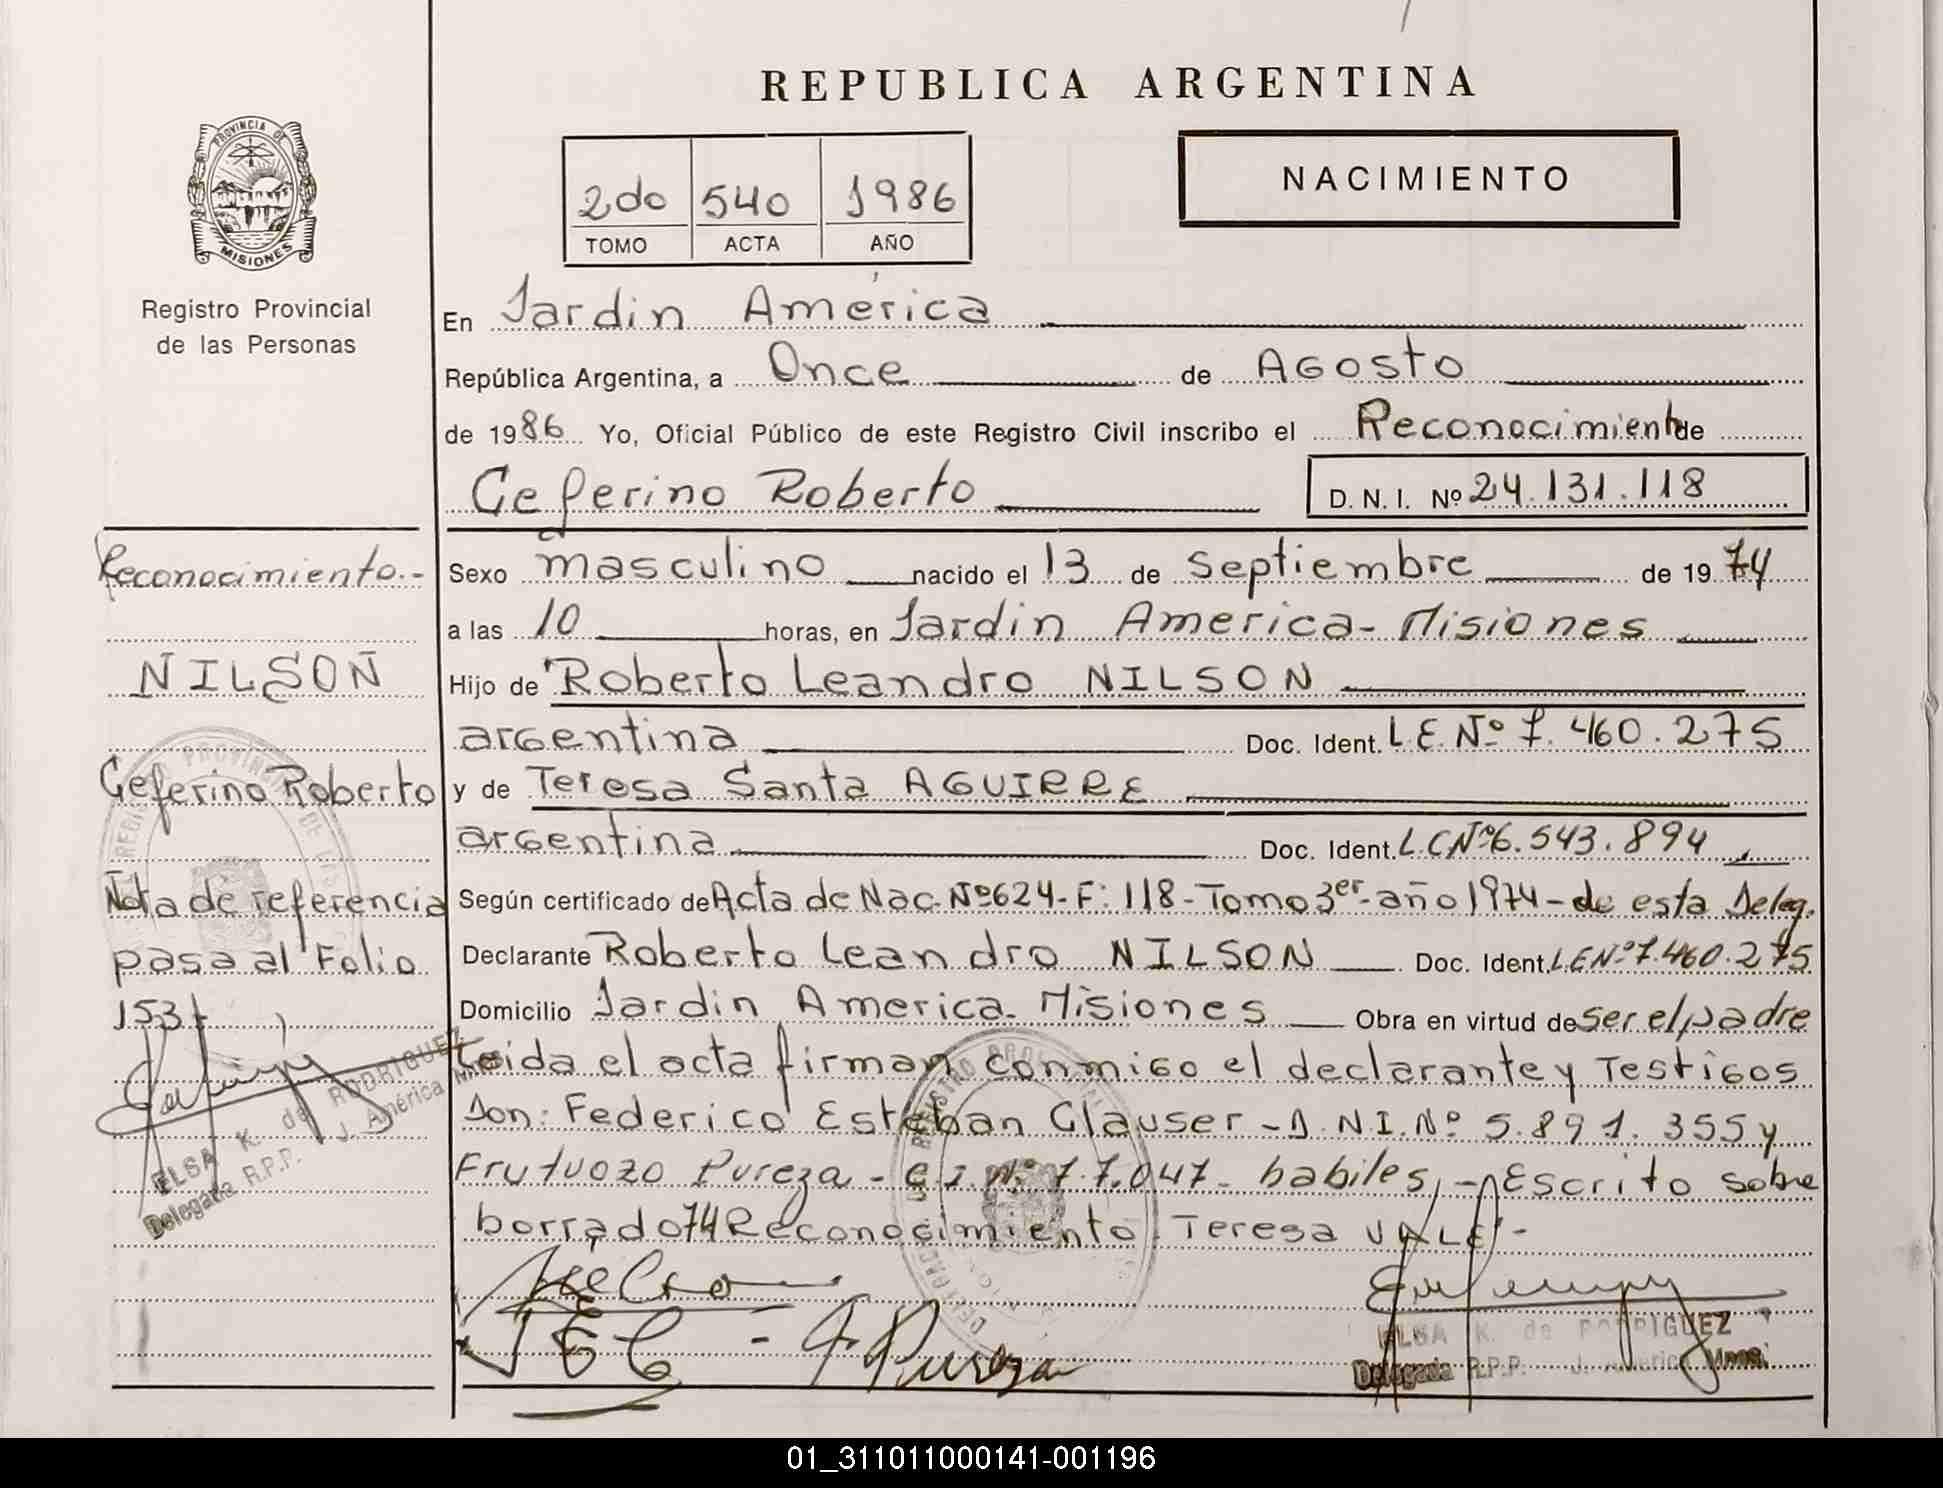 REPUBLICA ARGENTINA
2do 540 1986
TOMO ACTA AÑO
NACIMIENTO
PROVINCIA DE
MISIONES
Registro Provincial
de las Personas
En Jardin América
República Argentina, a Once de Agosto
de 1986 Yo, Oficial Público de este Registro Civil inscribo el Reconocimiento de
Ceferino Roberto D. N. I. Nº 24.131.118
Sexo masculino nacido el 13 de Septiembre de 1974
a las 10 horas, en Jardin America - Misiones
Hijo de Roberto Leandro NILSON
argentina Doc. Ident. L.E. Nº 7.460.275
y de Teresa Santa AGUIRRE
argentina Doc. Ident. L.C Nº 6.543.894
Según certificado de Acta de Nac. Nº 624 - F: 118 - Tomo 3er - año 1974 - de esta Deleg.
Declarante Roberto Leandro NILSON Doc. Ident. L.E Nº 7.460.275
Domicilio Jardin America - Misiones Obra en virtud de ser el padre
Leida el acta firman conmigo el declarante y Testigos
Don: Federico Esteban Glauser - D.N.I. Nº 5.891.355 y
Frutuozo Pureza - C.I. Nº 77.047 - habiles, - Escrito sobre
borrado 74 Reconocimiento Teresa VALE -
Pureza
ELSA K. de RODRIGUEZ
Delegada R.P.P. J. America Mnes.
Reconocimiento.-
NILSON
Ceferino Roberto
Nota de referencia
pasa al Folio
153
ELSA K. de RODRIGUEZ
Delegada R.P.P. J. América Mnes.
01_311011000141-001196